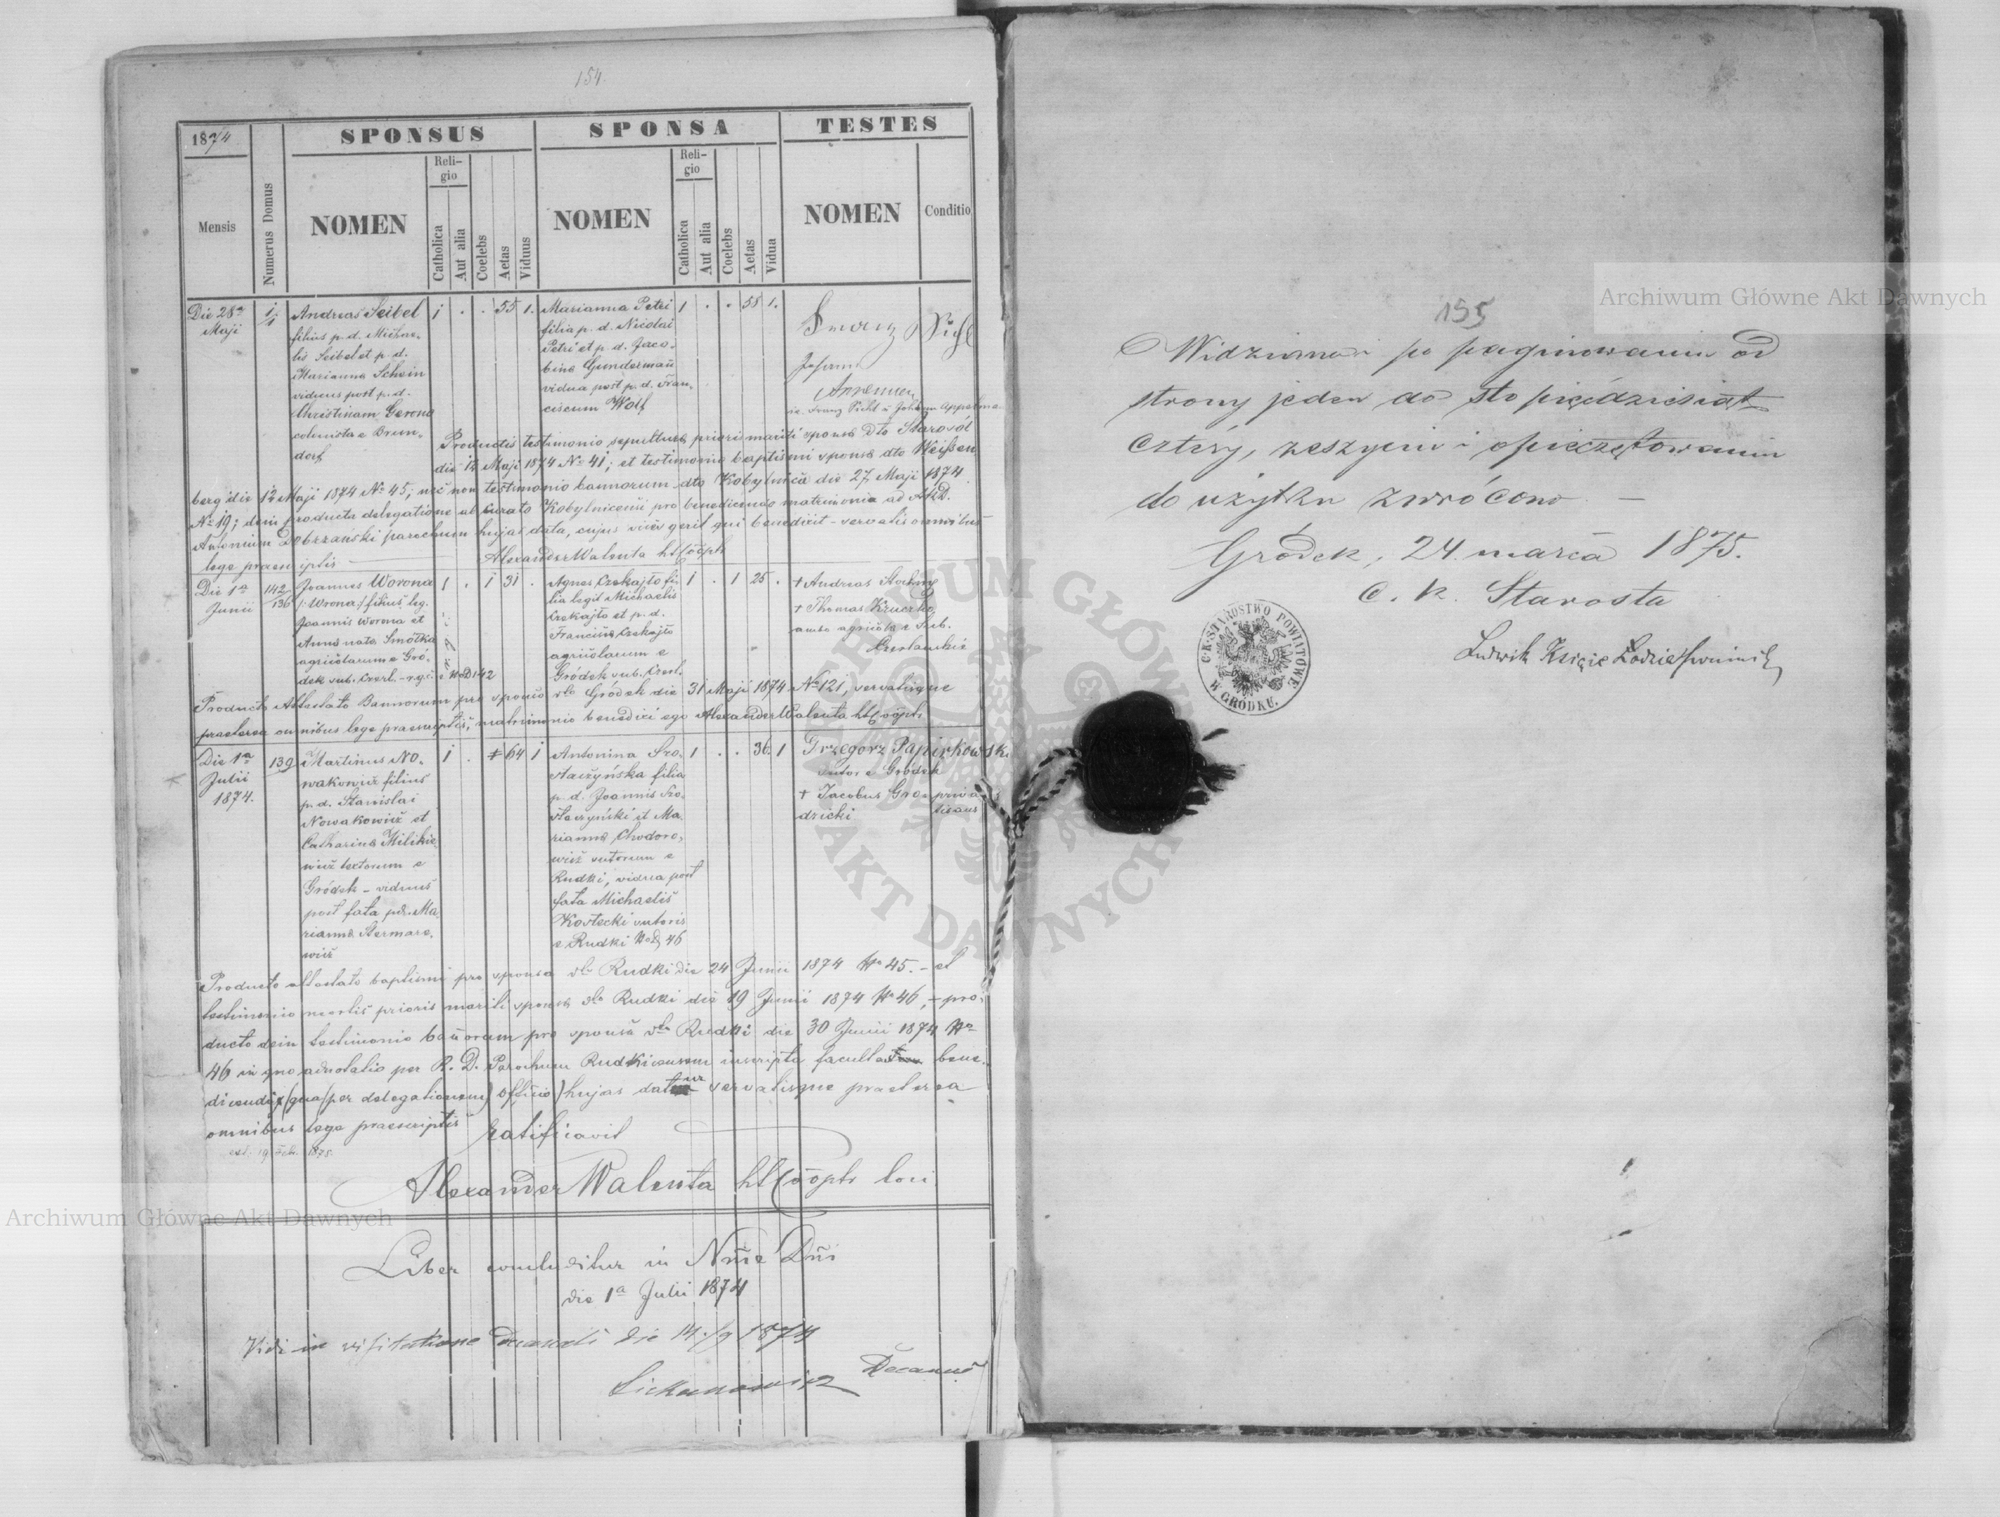 154.
1874
SPONSUS
SPONSA
TESTES
Mensis
Numerus Domus
NOMEN
Religio
Catholica
Aut alia
Coelebs
Aetas
Viduus
NOMEN
Religio
Catholica
Aut alia
Coelebs
Aetas
Vidua
NOMEN
Conditio
Die 28a
Maji
1
Andreas Seibel
filius p. d. Michae-
lis Seibel et p. d.
Marianna Schein
viduus post p. d.
Christinam Gerono
colonista e Brun-
dorf
1 . . 55 1.
Marianna Petri
filia p. d. Nicolai
Petri et p. d. Jaco-
bina Gunderman
vidua post p. d. Fran-
ciscum Wolf
1 . . 55 1.
Franz Pichl
Johann
Franz Picht i Johann Appelma
Productis testimonio sepulturae prioris mariti sponsae dto Starosol
die 12 Maji 1874 No 41; et testimonio baptismi sponsae dto Weißen
berg die 12 Maji 1874 No 45; nec non testimonio bannorum dto Kobylnica die 27 Maji 1874
No 19; dein producta delegatione a Curato Kobylnicensi pro benedicendo matrimonio ad A.R.D.
Antonium Dobrzański parochum hujas data, cujus vices gerit qui benedicit - servatis omnibus
lege praescriptis
Alexander Walenta
Die 1a
Junii
142
136
Joannes Worona
/: Wrona:/ filius leg.
Joannis Worona et
Anna nata Smotka
agricolarum e Gró-
dek sub. Czerl.
1 . 1 31 .
Agnes Czekajło fi-
lia legit Michaelis
Czekajło et p. d.
Francisca Czekajło
agricolarum e
Gródek sub. Czerl.
1 . 1 25 .
+ Andreas
+ Thomas Kruczko,
ambo agricolae e Sub.
Czerlanskie
Producto Attestato Bannorum pro sponso dto Gródek die 31 Maji 1874 No 121, servatisque
praeterea omnibus lege praescriptis, matrimonio benedixi ego Alexander Walenta
Die 1a
Julii
1874.
139
Martinus No-
wakowicz filius
p. d. Stanislai
Nowakowicz et
Catharina Milikie-
wicz textorum e
Gródek - viduus
post fata pd. Ma-
rianna
wicz
1 . 64 1
Antonina Sro-
taczyńska filia
p. d. Joannis Sro-
taczyński et Ma-
rianna Chodoro-
wicz sutorum e
Rudki, vidua post
fata Michaelis
Kostecki sutoris
e Rudki No D 46
1 . . 36 1
Grzegorz Papirkowsk.
sutor e Gródek
+ Jacobus Gro-
dzicki
Producto attestato baptismi pro sponsa dto Rudki die 24 Junii 1874 No 45. - et
testimonio mortis prioris mariti sponsae dto Rudki die 19 Junii 1874 No 46, - pro-
ducto dein testimonio bannorum pro sponsa dto Rudki die 30 Junii 1874 Nr
46 in quo adnotatio per R. D. Parochum Rudkiensem inscripta facultas bene-
dicendi (qua per delegationem) officio hujas datur servatisque praeterea
omnibus lege praescriptis
ratificavit
ext. 19 Feb. 1875.
Alexander Walenta loci
Liber concluditur in Nne Dni
die 1a Julii 1874
Vidi in visitatione Decanali die 14./9 1874
Decanus
155
Widziano po paginowaniu od
strony jeden do sto pięćdziesiąt
cztéry, zeszyciu i opieczętowaniu
do użytku zwrócono -
Gródek, 24. marca 1875.
C. k. Starosta
Ludwik Książe
C.K. STAROSTWO POWIATOWE W GRÓDKU.
Archiwum Główne Akt Dawnych
Archiwum Główne Akt Dawnych
ARCHIWUM GŁÓWNE AKT DAWNYCH